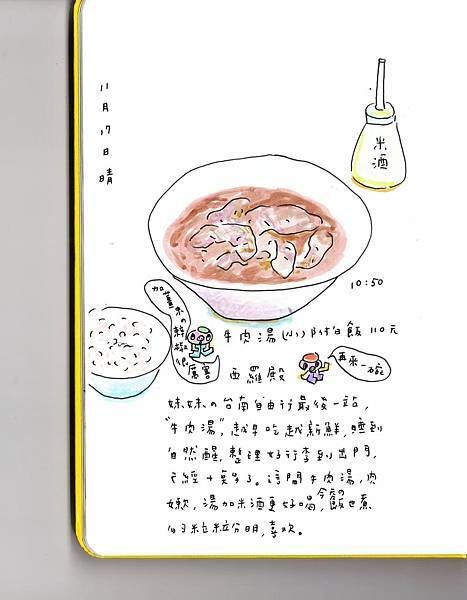 11月17日晴
米酒
10:50
加薑末の辣椒很厲害
牛肉湯(小)附白飯 110元
再來一碗
西羅殿
妹妹の台南自由行最後一站,
"牛肉湯",越早吃越新鮮,睡到
自然醒,整理好行李到出門,
已經十點多了。這間牛肉湯,肉
嫩,湯加米酒更好喝,今麼の飯也煮
的粒粒分明,喜歡。